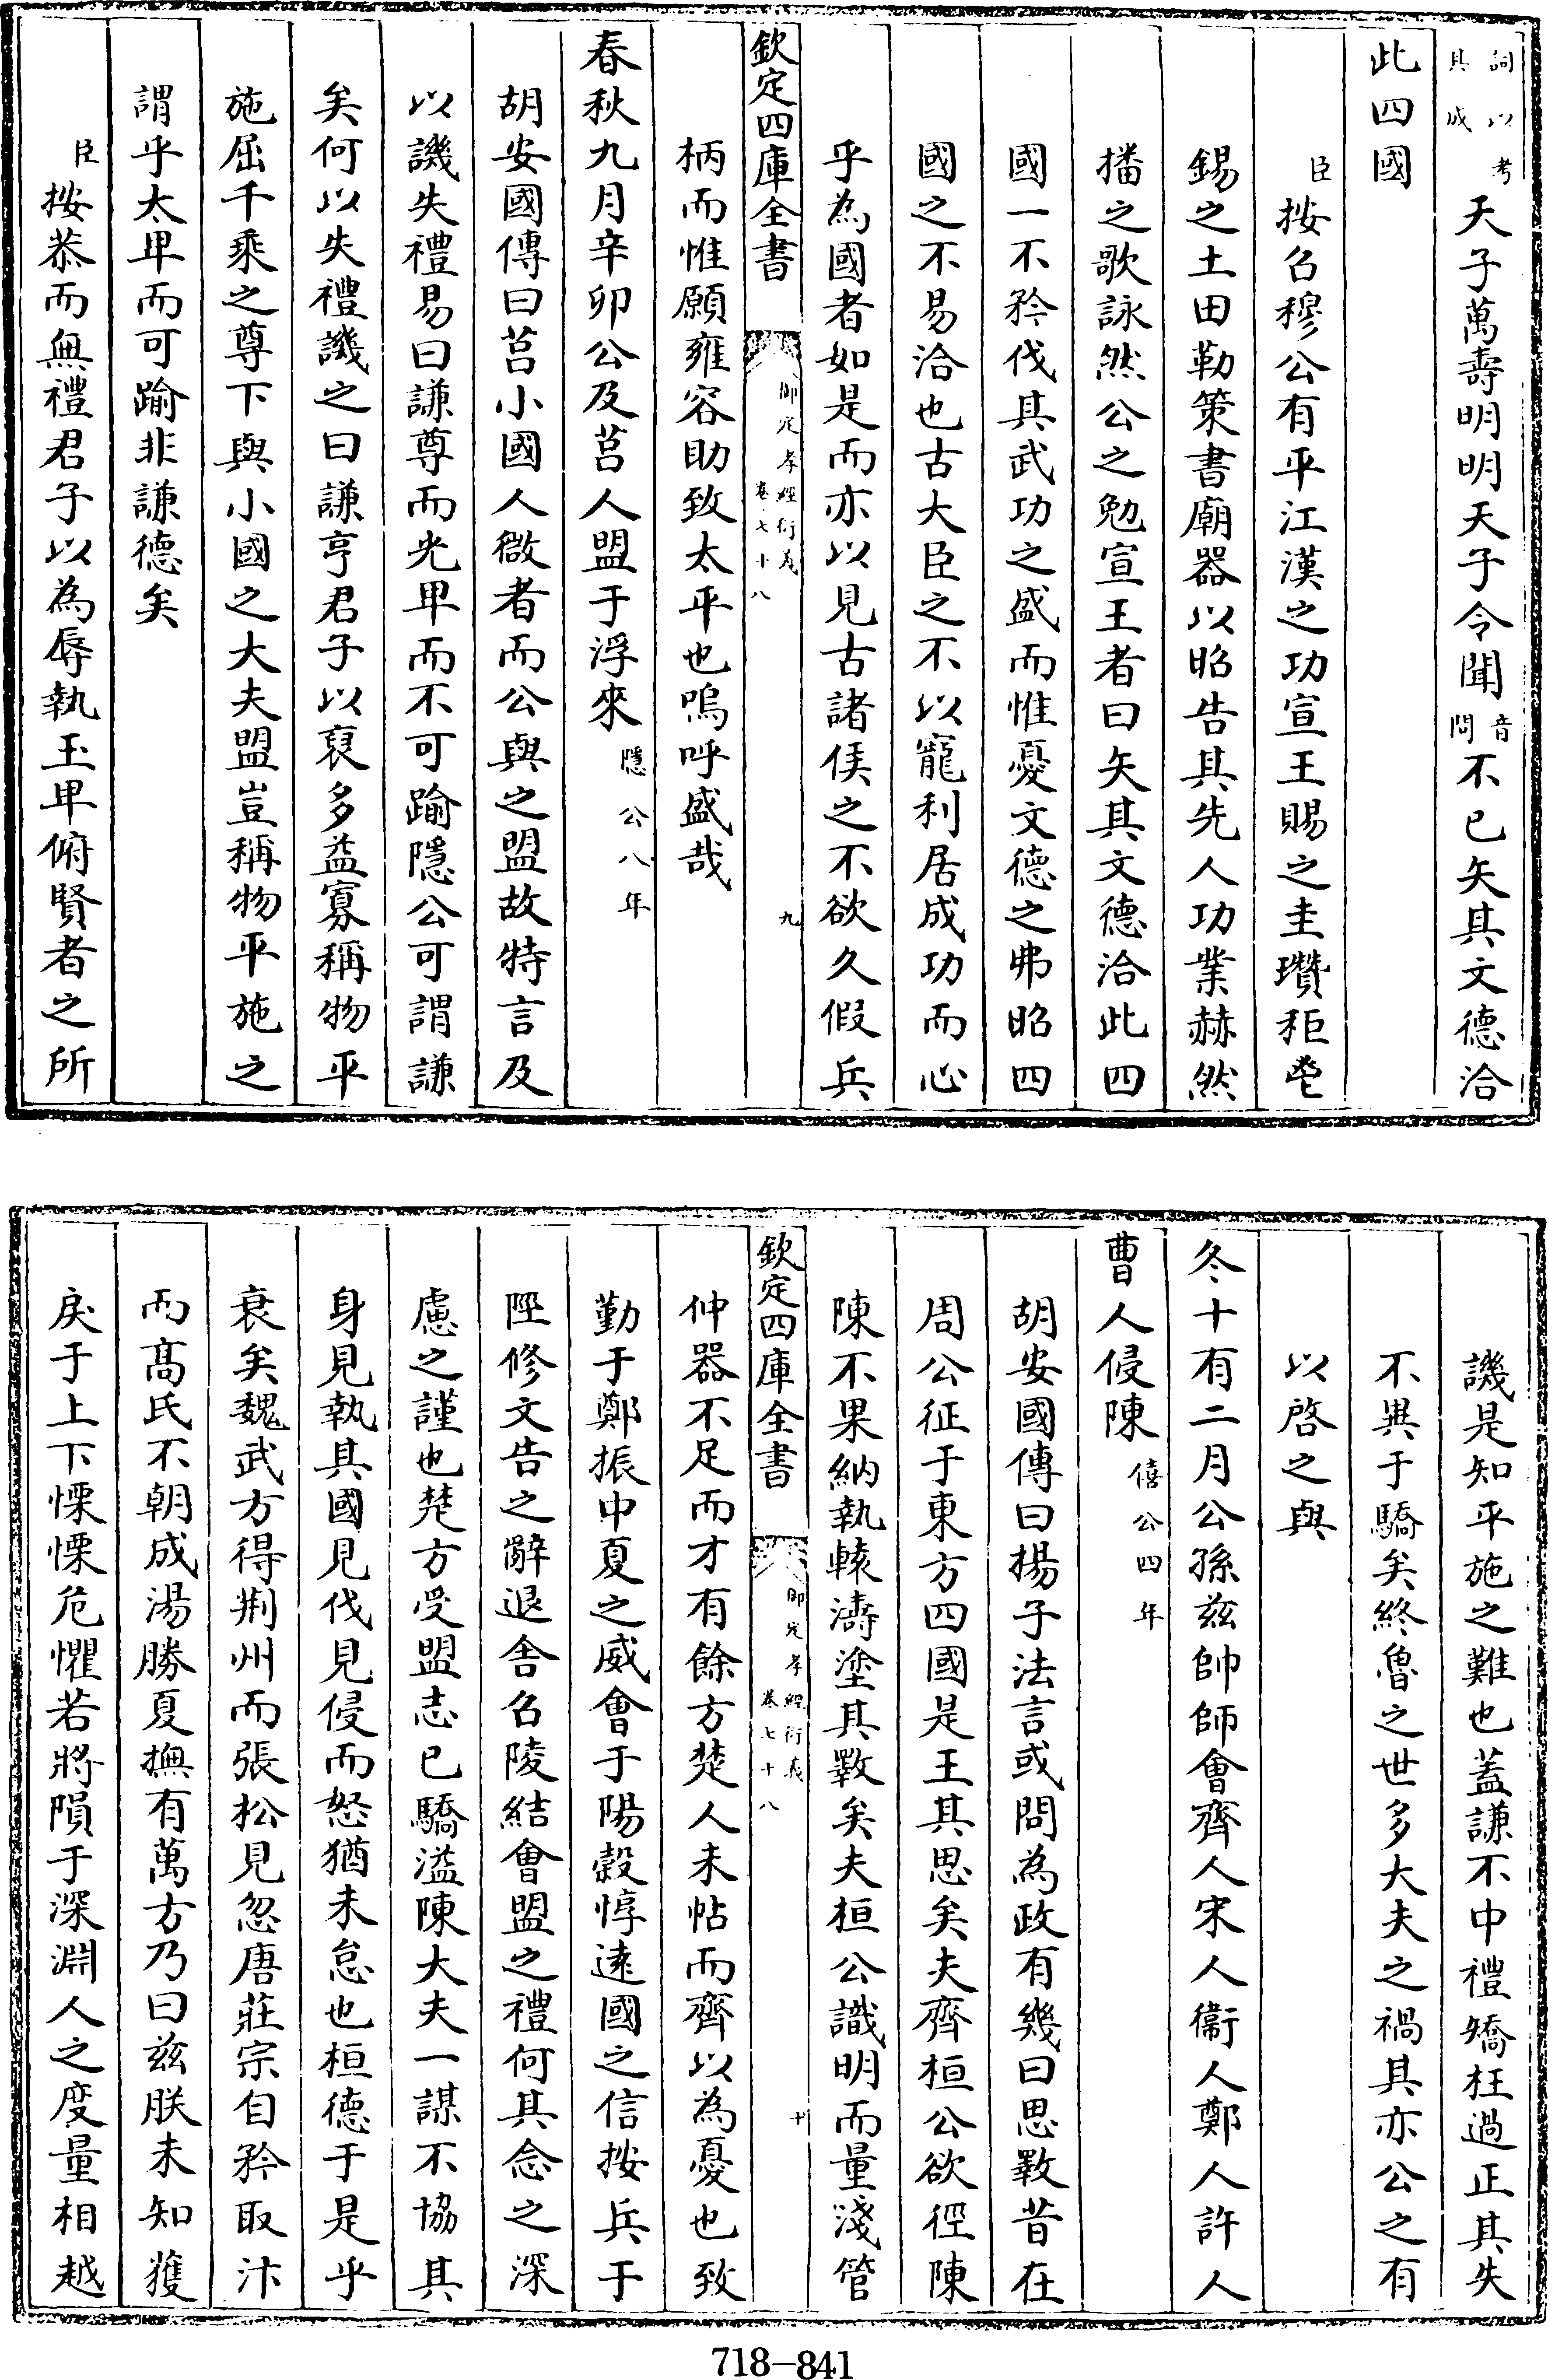 詞以考其成天子萬壽明明天子令聞音問不已矢其文德洽
此四國
臣按召穆公有平江漢之功宣王賜之圭瓚秬鬯
錫之土田勒策書廟器以昭告其先人功業赫然
播之歌詠然公之勉宣王者曰矢其文德洽此四
國一不矜伐其武功之盛而惟憂文德之弗昭四
國之不易洽也古大臣之不以寵利居成功而心
乎為國者如是而亦以見古諸侯之不欲久假兵
欽定四庫全書 御定孝經衍義 卷七十八 九
柄而惟願雍容助致太平也嗚呼盛哉
春秋九月辛卯公及莒人盟于浮來隱公八年
胡安國傳曰莒小國人微者而公與之盟故特言及
以譏失禮易曰謙尊而光卑而不可踰隱公可謂謙
矣何以失禮譏之曰謙亨君子以裒多益寡稱物平
施屈千乘之尊下與小國之大夫盟豈稱物平施之
謂乎太卑而可踰非謙德矣
臣按恭而無禮君子以為辱執玉卑俯賢者之所
譏是知平施之難也蓋謙不中禮矯枉過正其失
不異于驕矣終魯之世多大夫之禍其亦公之有
以啓之與
冬十有二月公孫茲帥師會齊人宋人衞人鄭人許人
曹人侵陳僖公四年
胡安國傳曰揚子法言或問為政有幾曰思斁昔在
周公征于東方四國是王其思矣夫齊桓公欲徑陳
陳不果納執轅濤塗其斁矣夫桓公識明而量淺管
欽定四庫全書 御定孝經衍義 卷七十八 十
仲器不足而才有餘方楚人未帖而齊以為憂也致
勤于鄭振中夏之威會于陽穀惇遠國之信按兵于
陘修文告之辭退舍召陵結會盟之禮何其念之深
慮之謹也楚方受盟志已驕溢陳大夫一謀不協其
身見執其國見伐見侵而怒猶未怠也桓德于是乎
衰矣魏武方得荆州而張松見忽唐莊宗自矜取汴
而髙氏不朝成湯勝夏撫有萬方乃曰茲朕未知獲
戾于上下慄慄危懼若將隕于深淵人之度量相越
718-841